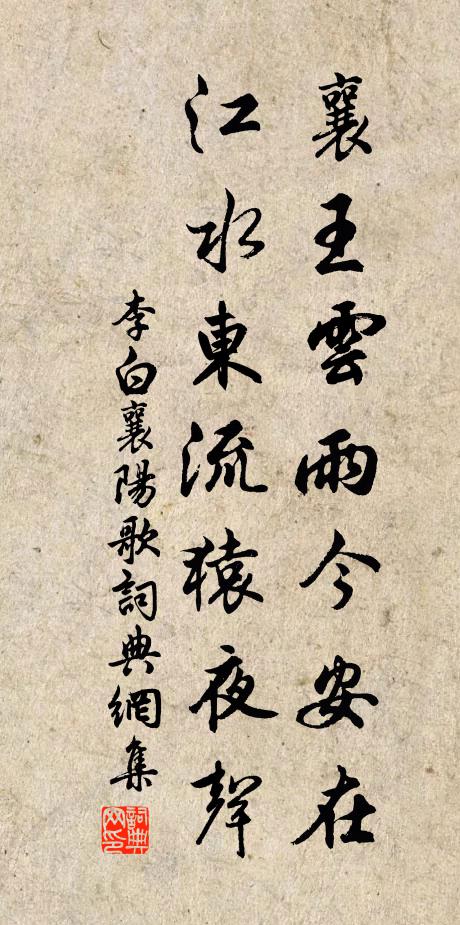 襄王雲雨今安在
江水東流猿夜聲
李白襄陽歌詞典網集
詞典
网印